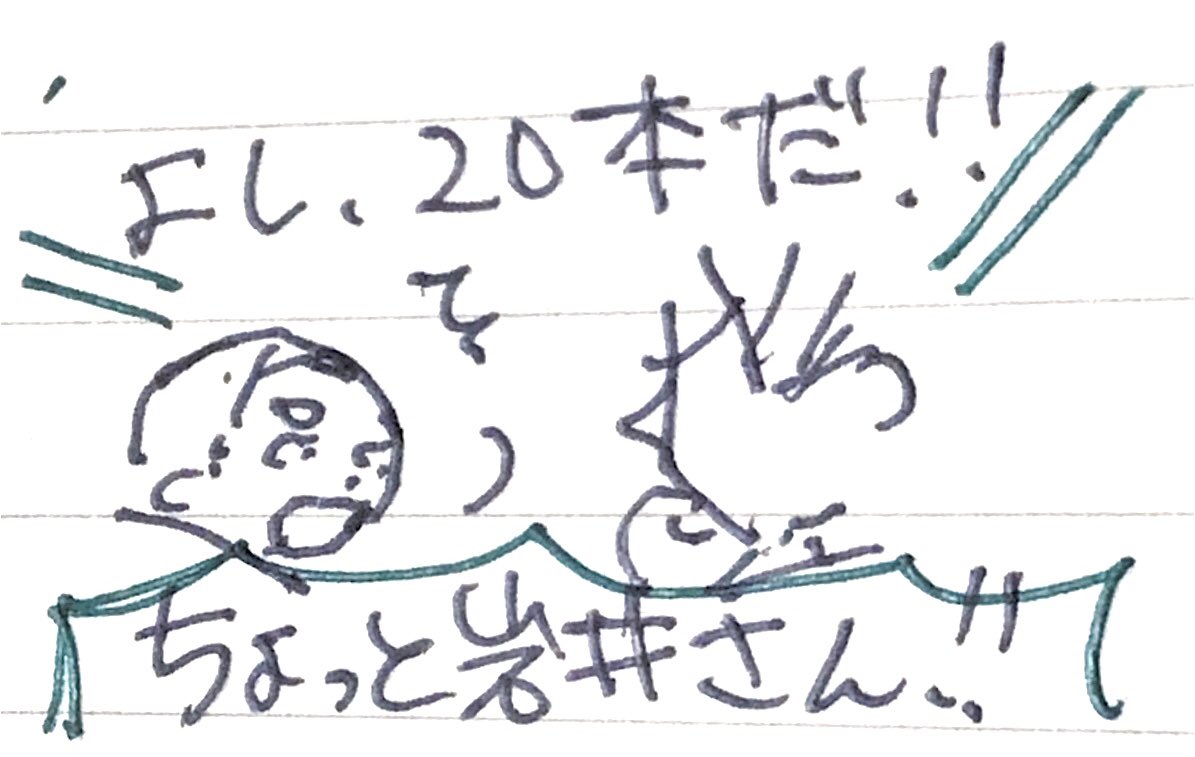 よし、20本だ!!
ちょっと岩井さん!!